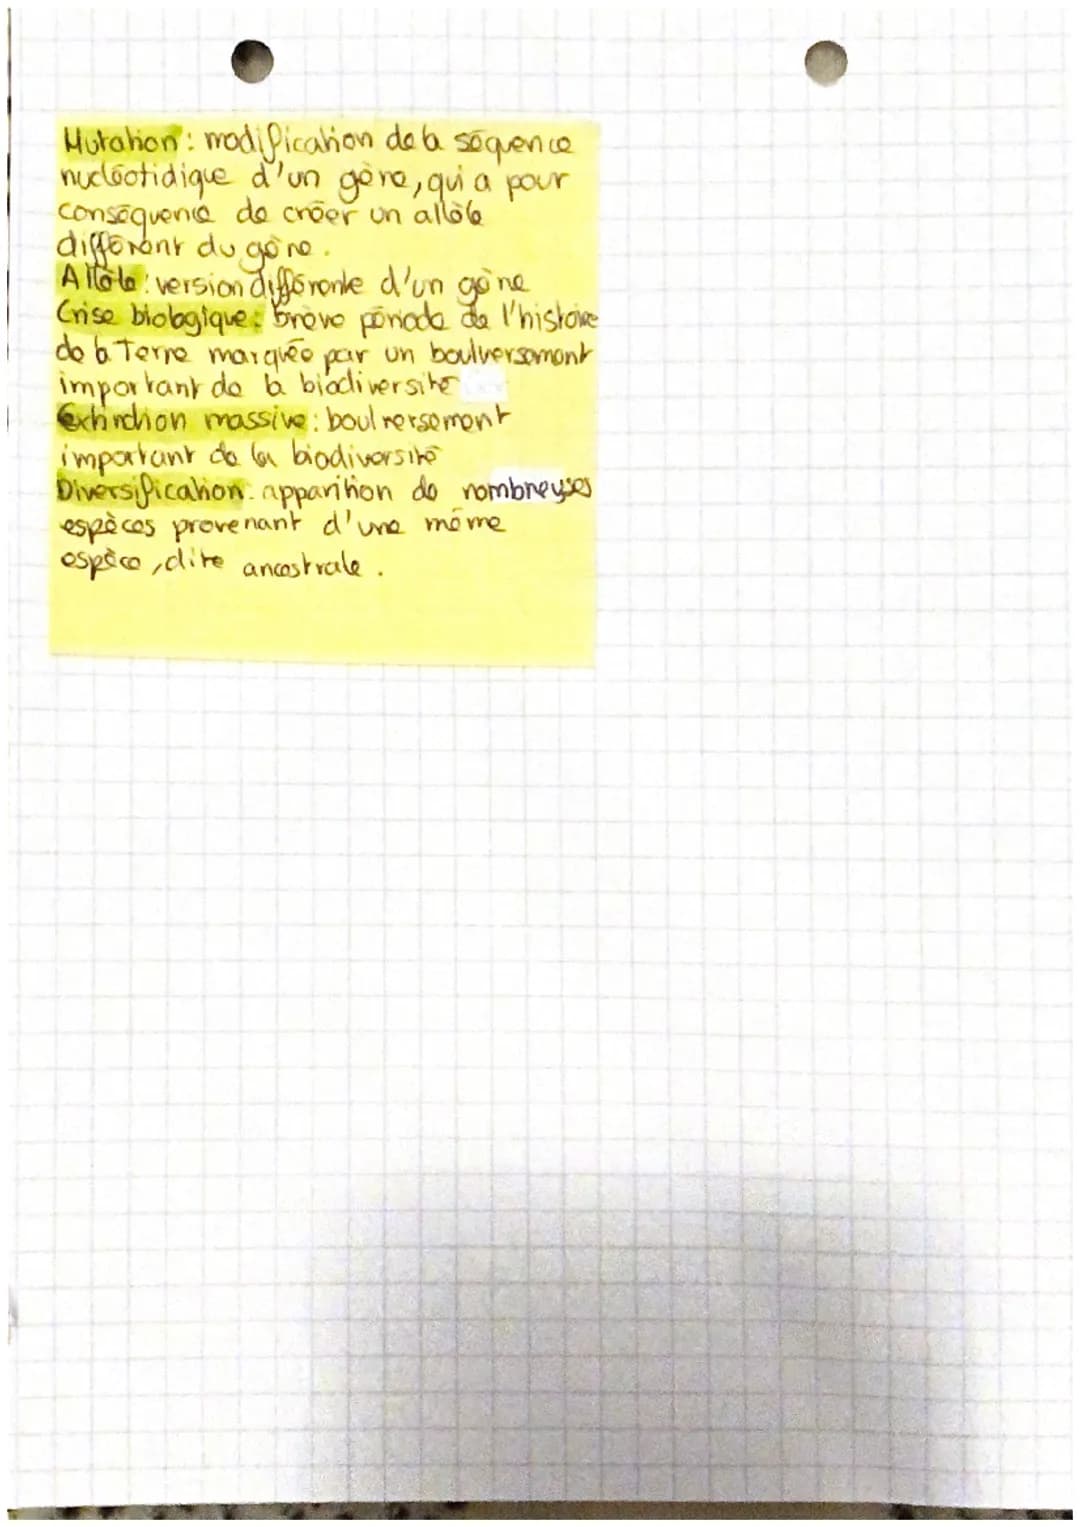 Mutation : modification de la séquence
nucléotidique d'un gène, qui a pour
conséquence de créer un allèle
différent du gène.
Allèle : version différente d'un gène
Crise biologique : brève période de l'histoire
de la Terre marquée par un boulversement
important de la biodiversité
Extinction massive : boulversement
important de la biodiversité
Diversification : apparition de nombreuses
espèces provenant d'une même
espèce, dite ancestrale.